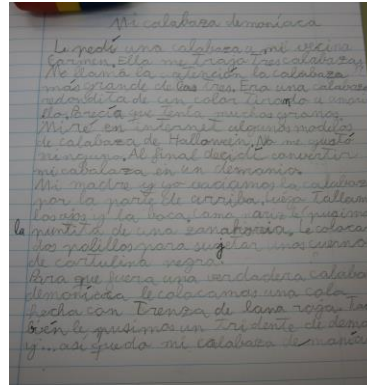 Mi calabaza demoníaca
Le pedí una calabaza a mi vecina
Carmen. Ella me trajo tres calabazas.
Me llamó la atención la calabaza
más grande de las tres. Era una calabaza
redondita de un color tirando a amari
llo. Parecía que tenía muchos granos.
Miré en internet algunos modelos
de calabaza de Halloween. No me gustó
ninguno. Al final decidí convertir
mi calabaza en un demonio.
Mi madre y yo vaciamos la calabaza
por la parte de arriba. Luego tallamos
los ojos y la boca. Como nariz le pusimos
la puntita de una zanahoria. Le coloca
dos palillos para sujetar unos cuernos
de cartulina negra.
Para que fuera una verdadera calaba
demoníaca le colocamos una cola
hecha con trenza de lana roja. Tam
bién le pusimos un tridente de demo
y... así quedó mi calabaza demoníac